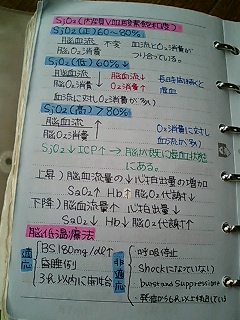 SjO₂(内頚V血酸素飽和度)
SjO₂(正)60〜80%
脳血流 不変 血流とO₂消費が
脳O₂消費 つり合っている。
SjO₂(低)60%↓
脳血流 脳血流↓ 長時間続くと
脳O₂消費↑ O₂消費↑ 虚血
脳血流に対しO₂消費が多い
SjO₂(高)>80%↑
脳血流 ↑ O₂消費に対し
脳O₂消費 血流が多い
SjO₂↓ ICP↑→脳が既に虚血状態
にある。
上昇)脳血流量の↓心拍出量の増加
SaO₂↑ Hb↑ 脳O₂代謝↓
下降)脳血流量↑ 心拍出量↓
SaO₂↓ Hb↓ 脳O₂代謝↑
脳低温療法
適応 BS180mg/dl↑
昏睡例
3h以内に開始
非適応 呼吸停止
Shockになっていない
burst and suppression
発症から6h以上